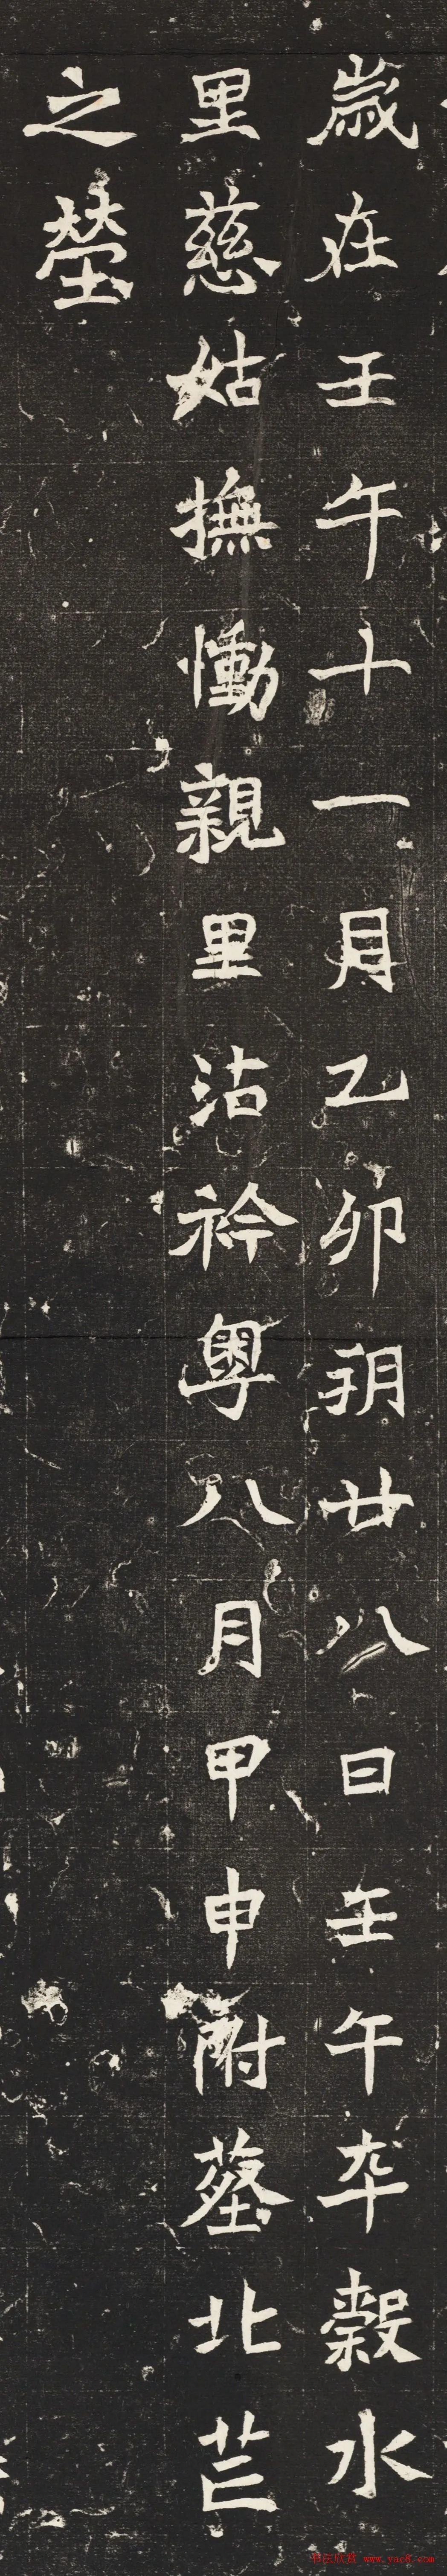 歲在壬午十一月乙卯朔廿八日壬午卒穀水
里慈姑撫慟親里沾衿粵八月甲申祔墓北芒
之塋
www.yac8.com